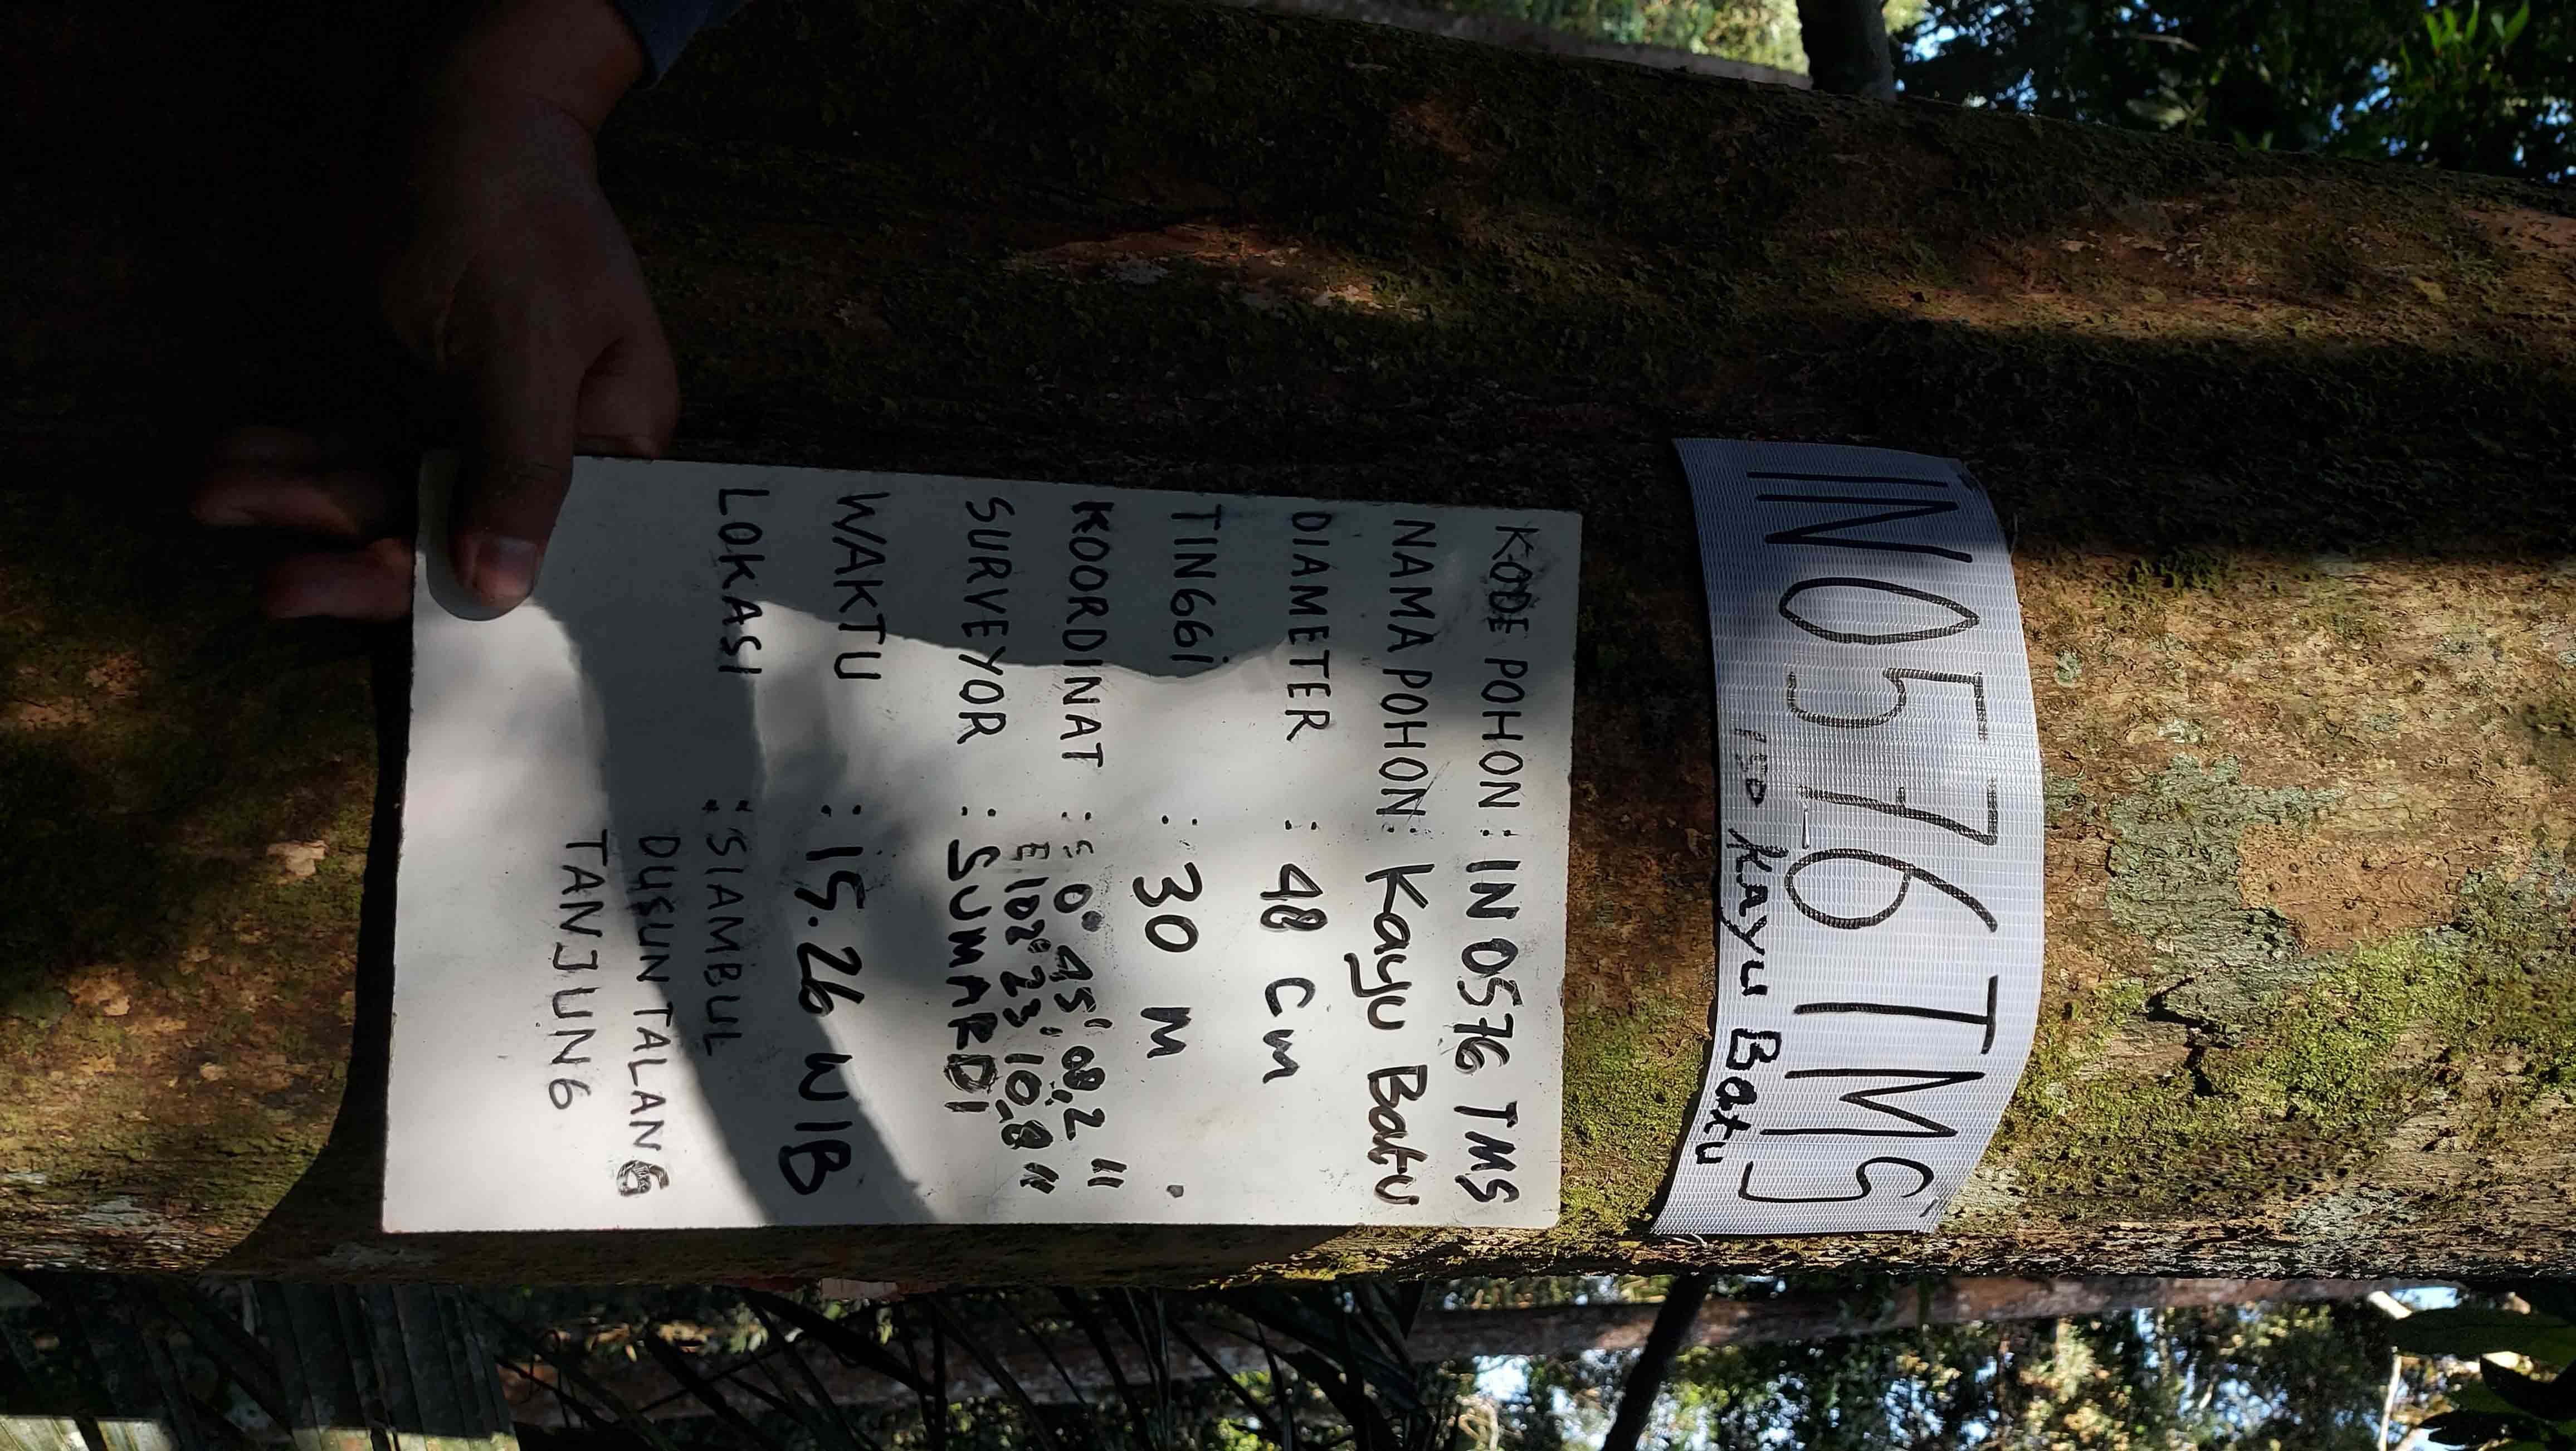 IN0576 TMS
150 Kayu Batu
KODE POHON : IN 0576 TMS
NAMA POHON : Kayu Batu
DIAMETER : 48 Cm
TINGGI : 30 M
KOORDINAT : S 0° 45' 08,2"
E 102° 23' 10,8"
SURVEYOR : SUMARDI
WAKTU : 15.26 WIB
LOKASI : SIAMBUL
DUSUN TALANG
TANJUNG